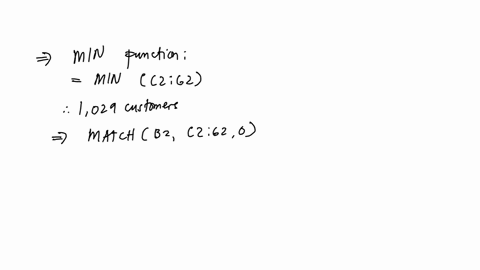 ⇒ MIN function:
= MIN (C2:G2)
∴ 1,029 customers
⇒ MATCH (B2, C2:G2, 0)